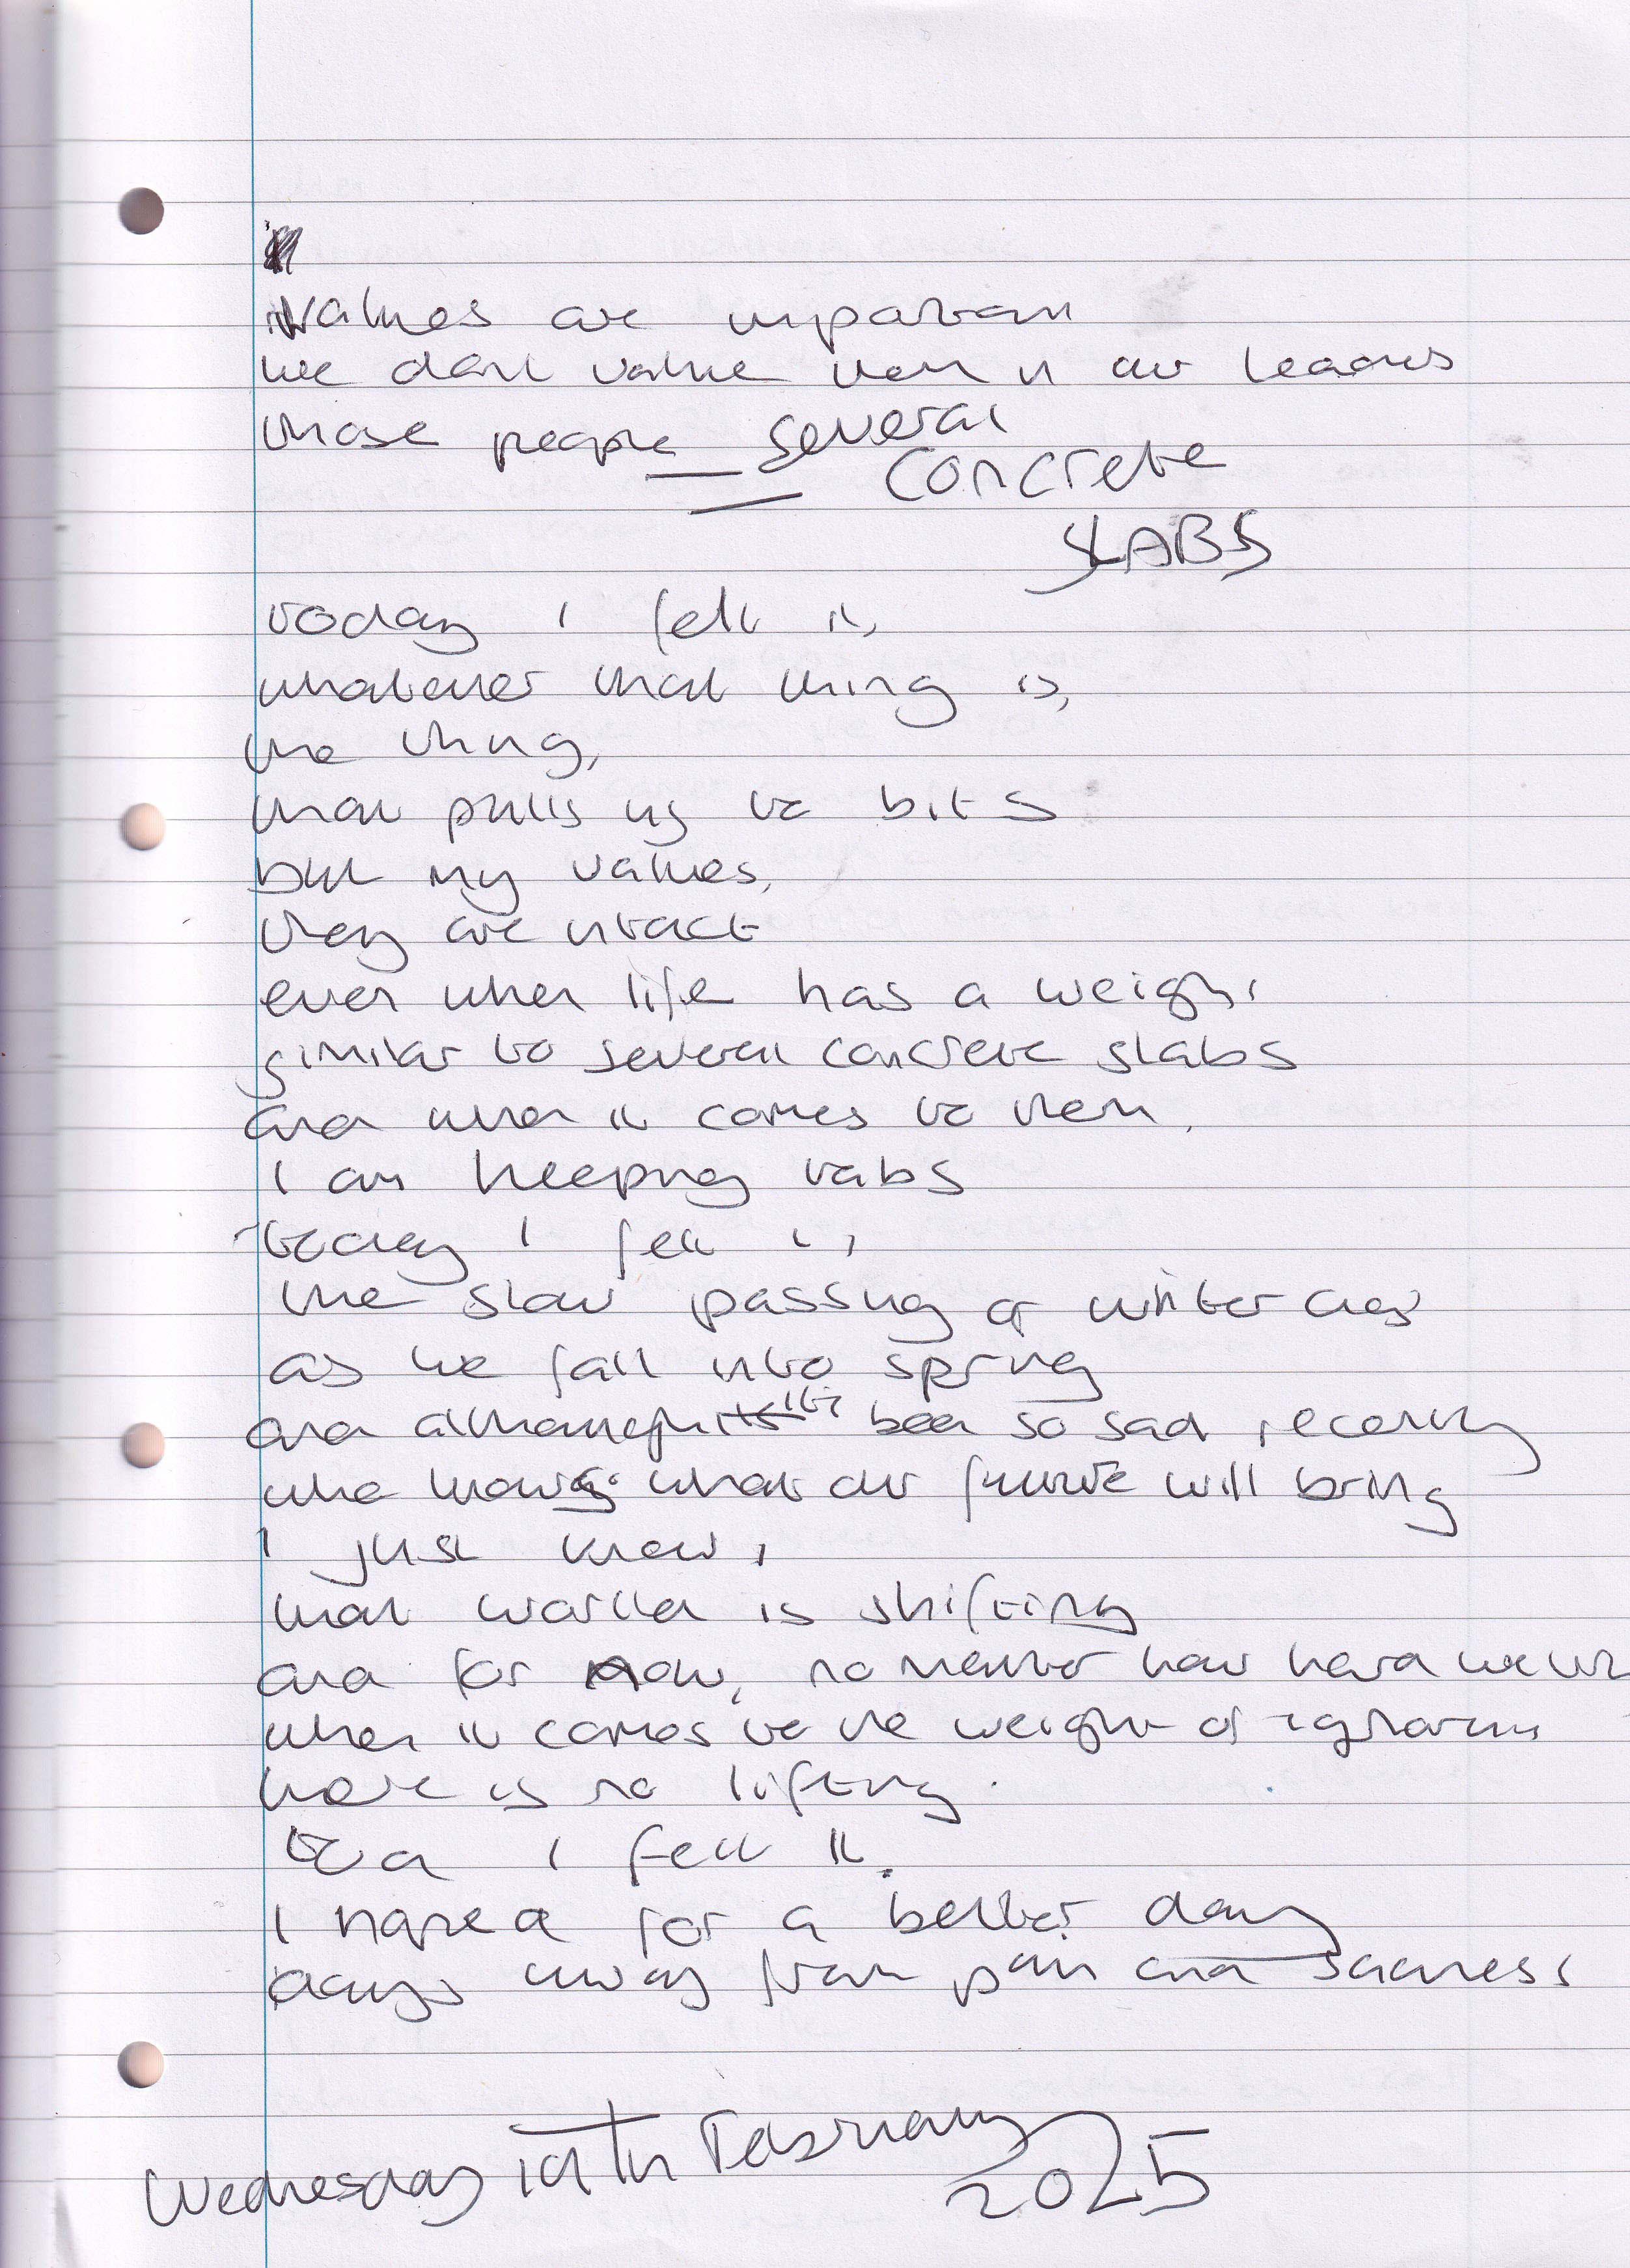 Values are important
we don't value them in our leaders
those people several
concrete
SLABS
today I felt it,
whatever that thing is,
the thing,
that pulls us to bits
but my values,
they are intact
even when life has a weight
similar to several concrete slabs
and when it comes to them,
I am keeping tabs
today I felt it,
the slow passing of winter days
as we fall into spring
and although it's been so sad recently
who knows what our future will bring
I just know,
that world is shifting
and for now, no matter how hard we
when it comes to the weight of ignorance
there is no lifting.
I felt it.
I hoped for a better day
days away from pain and sadness
Wednesday 19th February
2025